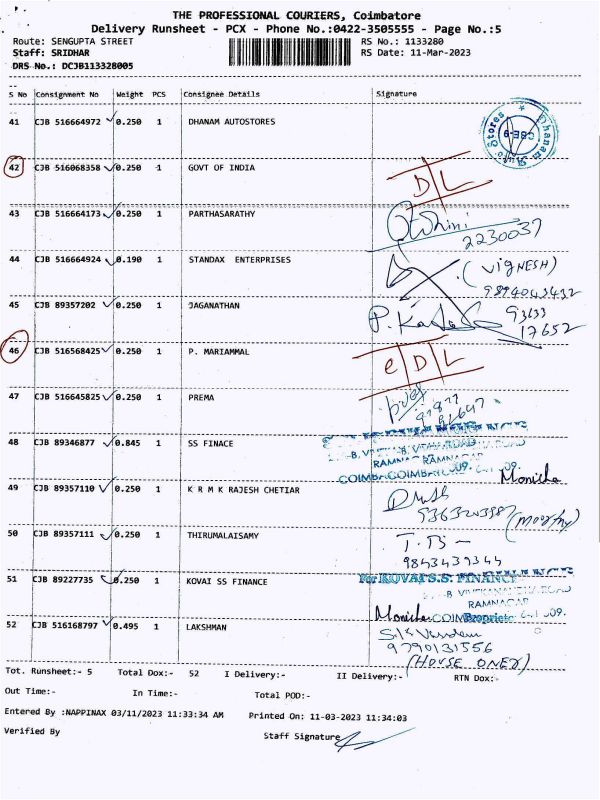 THE PROFESSIONAL COURIERS, Coimbatore
Delivery Runsheet - PCX - Phone No.:0422-3505555 - Page No.:5
Route: SENGUPTA STREET RS No.: 1133280
Staff: SRIDHAR RS Date: 11-Mar-2023
DRS No.: DCJB113328005
S No Consignment No Weight PCS Consignee Details Signature
41 CJB 516664972 0.250 1 DHANAM AUTOSTORES
Dhanam Auto Stores CBE-9
42 CJB 516068358 0.250 1 GOVT OF INDIA
D L
43 CJB 516664173 0.250 1 PARTHASARATHY
2230037
44 CJB 516664924 0.190 1 STANDAX ENTERPRISES
(VIGNESH)
45 CJB 89357202 0.250 1 JAGANATHAN
93633
17652
46 CJB 516568425 0.250 1 P. MARIAMMAL
e D L
47 CJB 516645825 0.250 1 PREMA
48 CJB 89346877 0.845 1 SS FINACE
RAMNAGAR
Monisha
49 CJB 89357110 0.250 1 K R M K RAJESH CHETIAR
(Moorthy)
50 CJB 89357111 0.250 1 THIRUMALAISAMY
9843439344
51 CJB 89227735 0.250 1 KOVAI SS FINANCE
For KOVAI S.S. FINANCE
RAMNAGAR
Monisha Proprietor
52 CJB 516168797 0.495 1 LAKSHMAN
9790131556
(HOUSE ONER)
Tot. Runsheet:- 5 Total Dox:- 52 I Delivery:- II Delivery:- RTN Dox:-
Out Time:- In Time:- Total POD:-
Entered By :NAPPINAX 03/11/2023 11:33:34 AM Printed On: 11-03-2023 11:34:03
Verified By Staff Signature